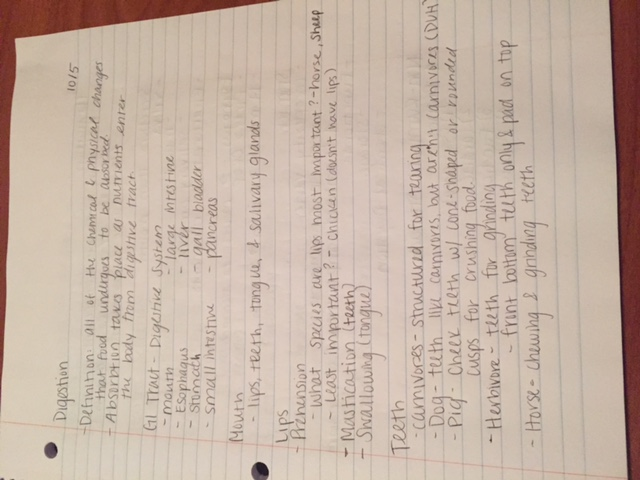 10/5
Digestion
- Definition: all of the chemical & physical changes
that food undergoes to be absorbed
- Absorption takes place as nutrients enter
the body from digestive tract
GI Tract - Digestive System
- mouth - large intestine
- Esophagus - liver
- stomach - gall bladder
- small intestine - pancreas
Mouth
- lips, teeth, tongue, & salivary glands
Lips
- Prehension
- What species are lips most important? - horse, sheep
- Least important? - chicken (doesn't have lips)
- Mastication (teeth)
- Swallowing (tongue)
Teeth
- carnivores - structured for tearing
- Dog - teeth like carnivores, but aren't carnivores (DUH)
- Pig - cheek teeth w/ cone-shaped or rounded
cusps for crushing food
- Herbivore - teeth for grinding
- front bottom teeth only & pad on top
- Horse - chewing & grinding teeth